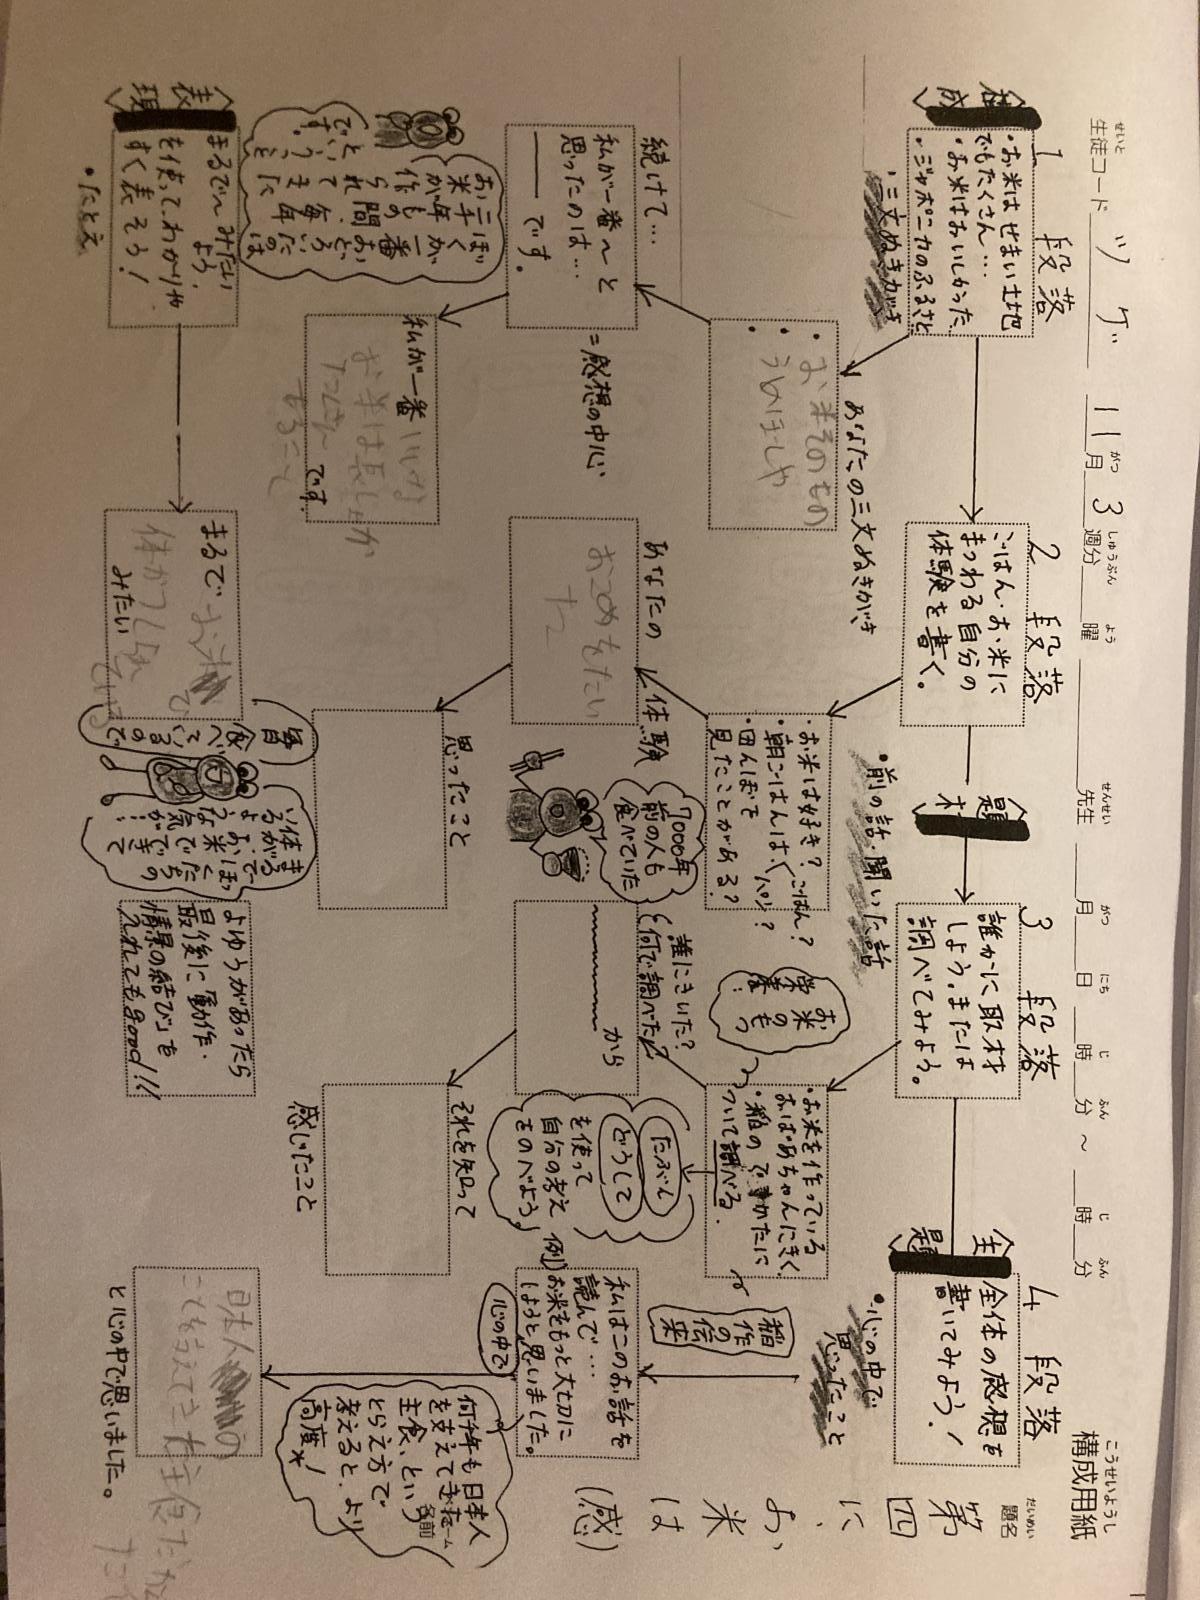 構成用紙
こうせいようし
生徒コード ツゲ 11月3週分 曜 先生 月 日 時 分 ～ 時 分
せいと がつ しゅうぶん よう せんせい がつ にち じ ふん じ ふん
題名
だいめい
第四
に、
お
米
は
(感)
1 段落
構成
・お米はせまい土地
でもたくさん…
・お米はおいしかった
・ジャポニカのふるさと
・三文ぬきがき
あなたの三文ぬきがき
お米そのもの
続けて…
私が一番～と
思ったのは…
です。
=感想の中心
私が一番
です。
ぼくが一番おどろいたのは
お米が二千年もの間、毎年
作られてきた
ということ
です。
表現
まるで～みたい
よう。
を使って、わかりや
すく表そう!
・たとえ
まるで
みたい
2 段落
ごはん・お米に
まつわる自分の
体験を書く。
・前の話・聞いた話
・お米は好き?
・朝ごはんは ごはん? パン?
・田んぼを
見たことがある?
あなたの
体験
7000年
前の人も
食べていた
思ったこと
毎日
食べて
いるので
まるでぼくたちの
体がお米でできて
いるような気が…
題材
3 段落
誰かに取材
しよう。または
調べてみよう。
お米のもつ
栄養!
・お米を作っている
おばあちゃんにきく
・稲のできかたに
ついて調べる。
誰にきいた?
何で調べた?
から
たぶん
どうして
を使って
自分の考え
をのべよう
それを知って
感じたこと
よゆうがあったら
最後に「動作・
情景の結び」を
入れてもgood!!!
主題
4 段落
全体の感想を
書いてみよう!
・心の中で
思ったこと
稲作の伝来
例)
私はこのお話を
読んで…
お米をもっと大切に
しようと思いました。
心の中で
何千年も日本人
を支えてきた
主食、という
とらえ方で
考えると、より
高度!
と心の中で思いました。